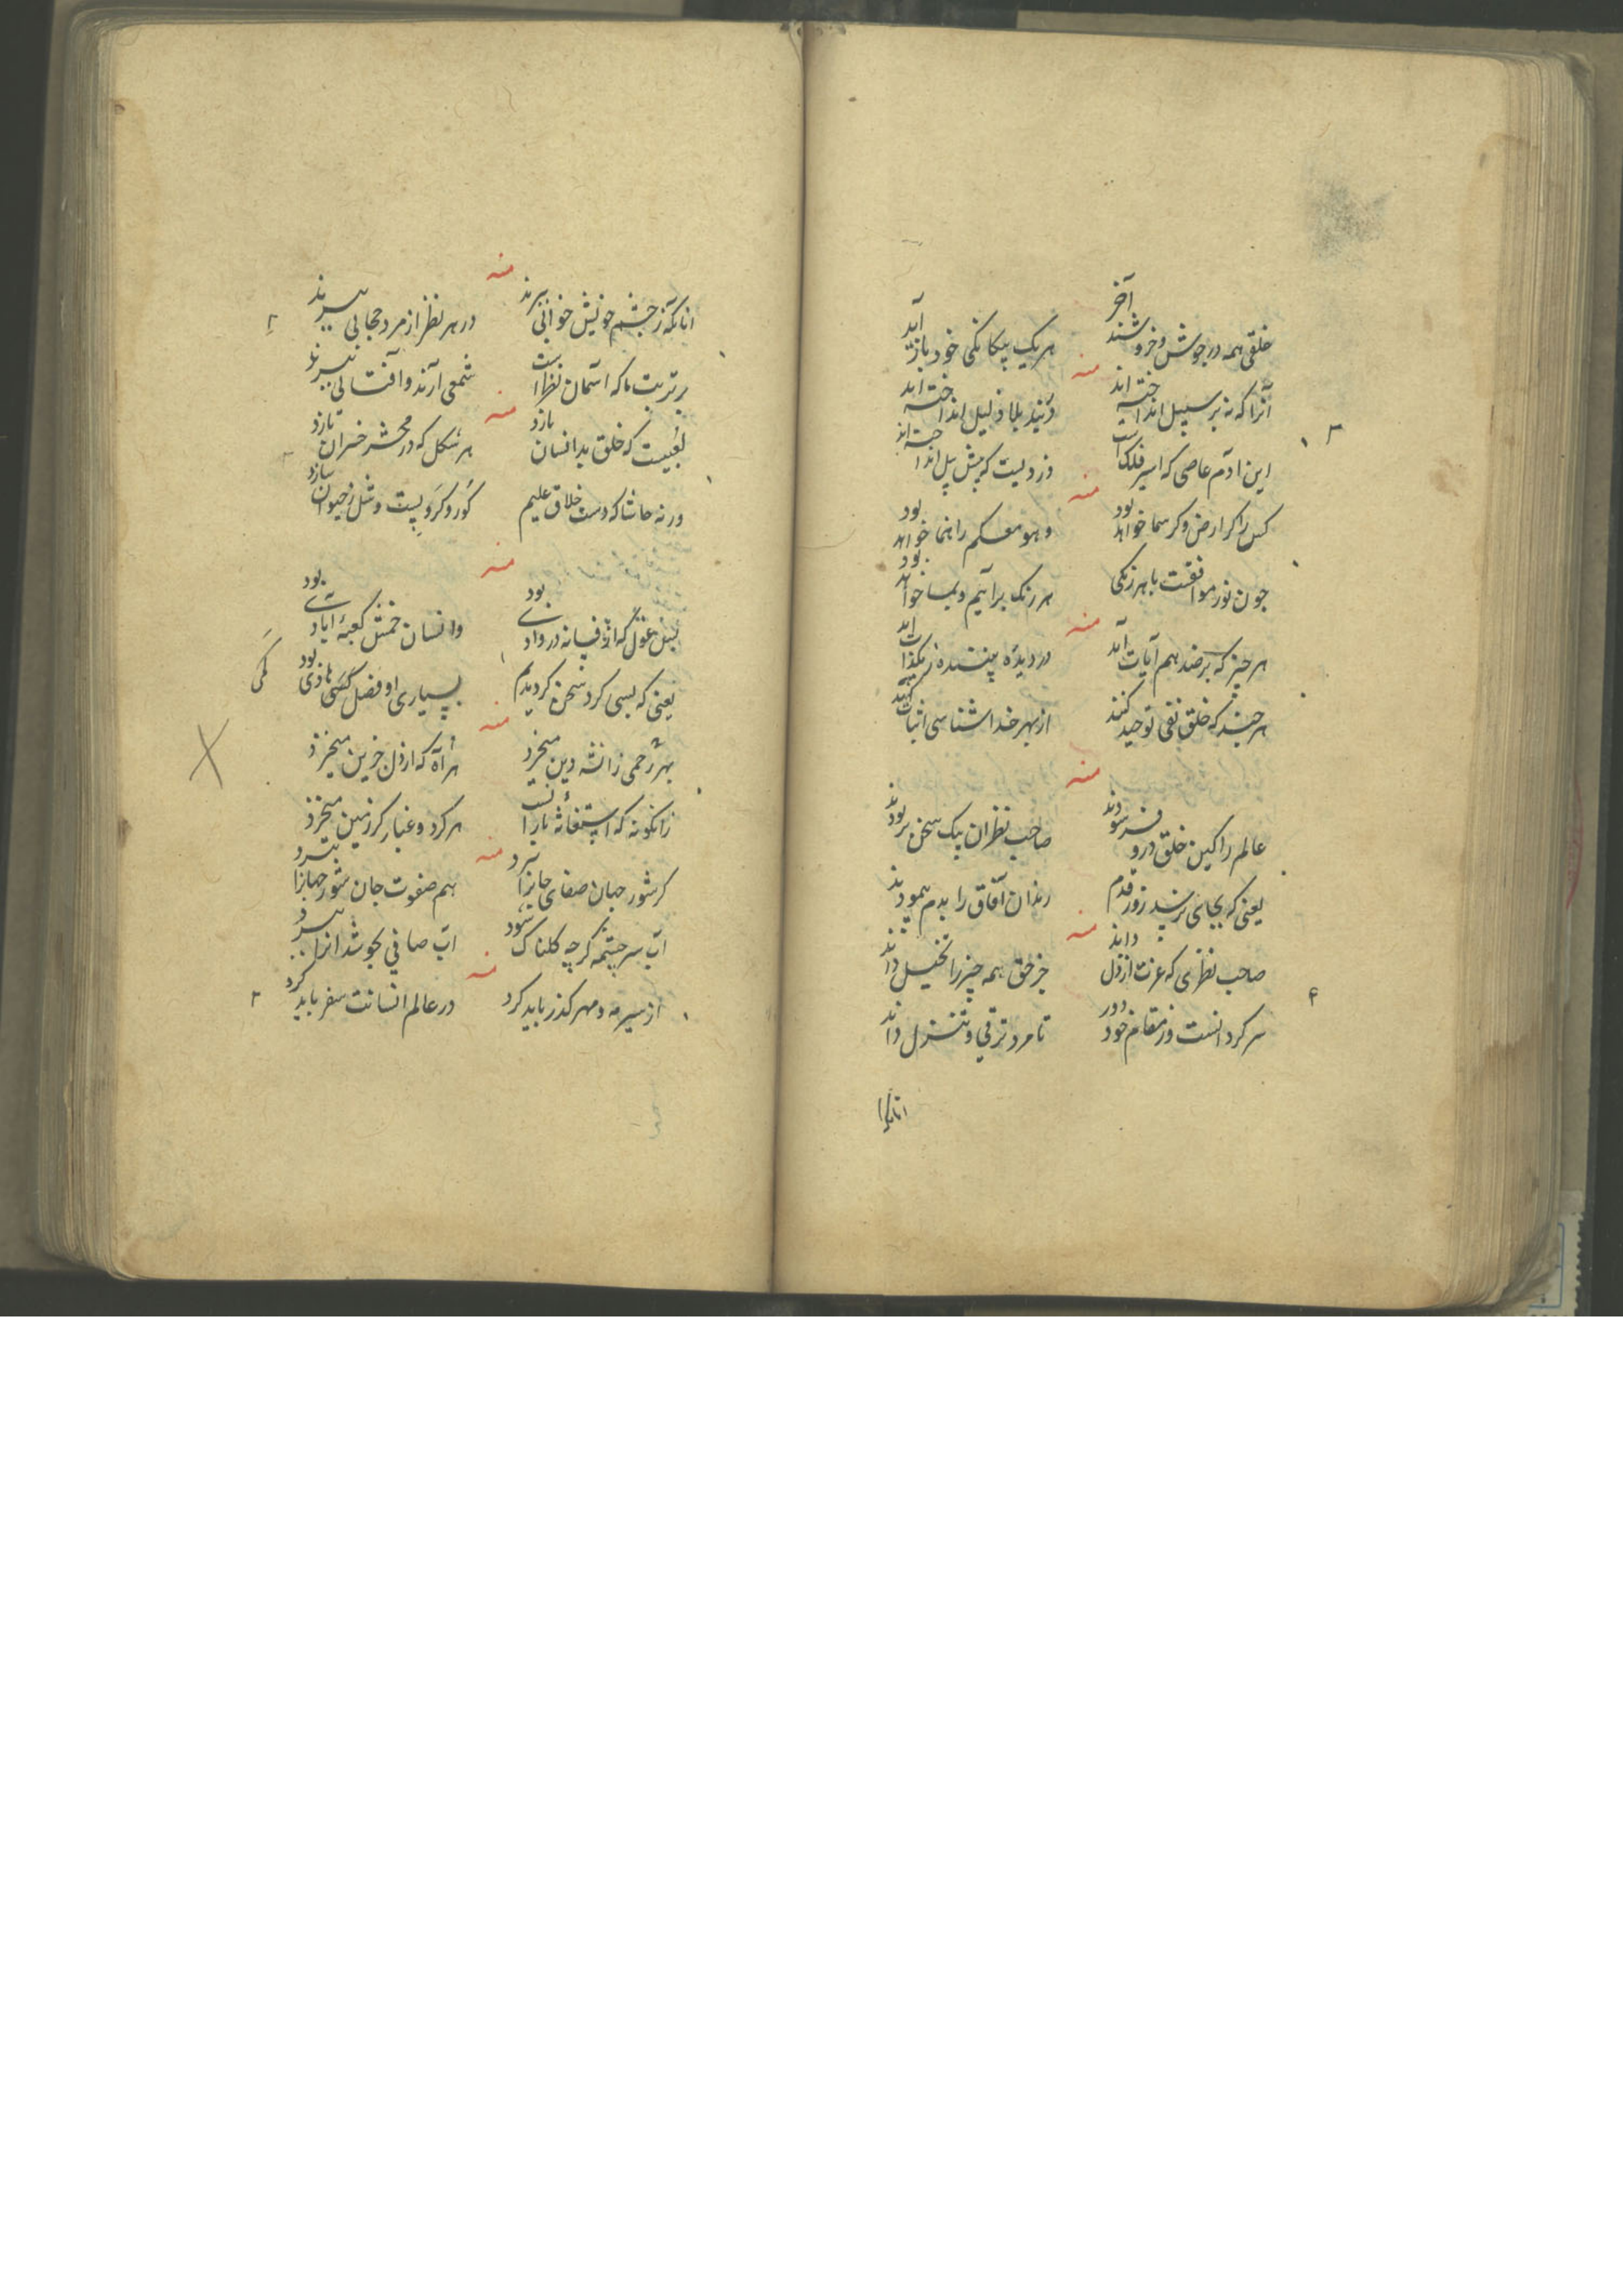 خلقی همه در جوش و خروشند آخر
هریک بیکانکی خود باز آید
منه
آنرا که نه بر سبیل انداخته اند
در بند بلا ذلیل انداخته اند
این ادم عاصی که اسیر فلک است
دزدیست که پیش پیل انداخته اند
منه
کس را کر ارض و کر سما خواهد بود
وهو معکم راهنما خواهد بود
چون نور موافقت با هر رنکی
هر رنک برآئیم و بما خواهد بود
منه
هر چیز که بر ضد هم آیات آید
در دیده بیننده ز یکذات آید
هر چند که خلق نفی توحید کنند
از بهر خدا شناسی اثبات کنند
منه
عالم را کین خلق درو فرسودند
صاحب نظران بیک سخن بربودند
یعنی که بجای نرسید زور قدم
رندان آفاق را بدم پیمودند
منه
صاحب نظری که عزت از ذل داند
جز حق همه چیز را تخیل داند
سر کردانست وز مقام خود دور
تا مرد ترقی و تنزل داند
انانکه
منه
انانکه ز چشم خویش خوابی ببرند
در هر نظر از مرد حجابی ببرند
بر تربت ما که آسمان نظر است
شمعی آرند و آفتابی ببرند
منه
لعبیست که خلق بد انسان بازد
هر شکل که در محشر خسران تازد
ورنه حاشا که دست خلاق علیم
کور و کر و پست و شل ز حیوان سازد
منه
وانسان خمش کعبهٔ آبادی بود
یعنی که بسی کرد سخن کردیدم
بسیاری او فضل کمی هاذی بود
کمی
منه
بهر زحمی ز انشه دین میخزد
هر آه که از دل حزین میخزد
زانکونه که استغاثهٔ بارانست
هر کرد و غبار کز زمین میخزد
منه
کر شور جهان صفای جانرا ببرد
هم صفوت جان شور جهانرا ببرد
آب سر چشمه کر چه کلناک شود
آب صافی بجوشد انرا ببرد
منه
از سیر مه و مهر کذر باید کرد
در عالم انسانت سفر باید کرد